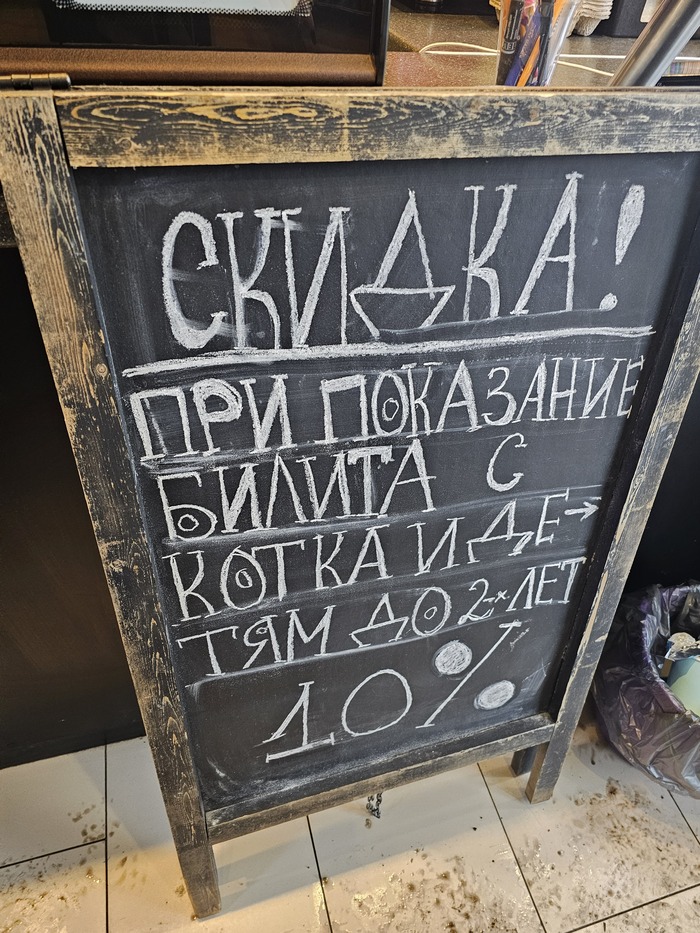 СКИДКА!
ПРИ ПОКАЗАНИЕ
БИЛИТА С
КОТКА И ДЕ→
ТЯМ ДО 2-х ЛЕТ
10%